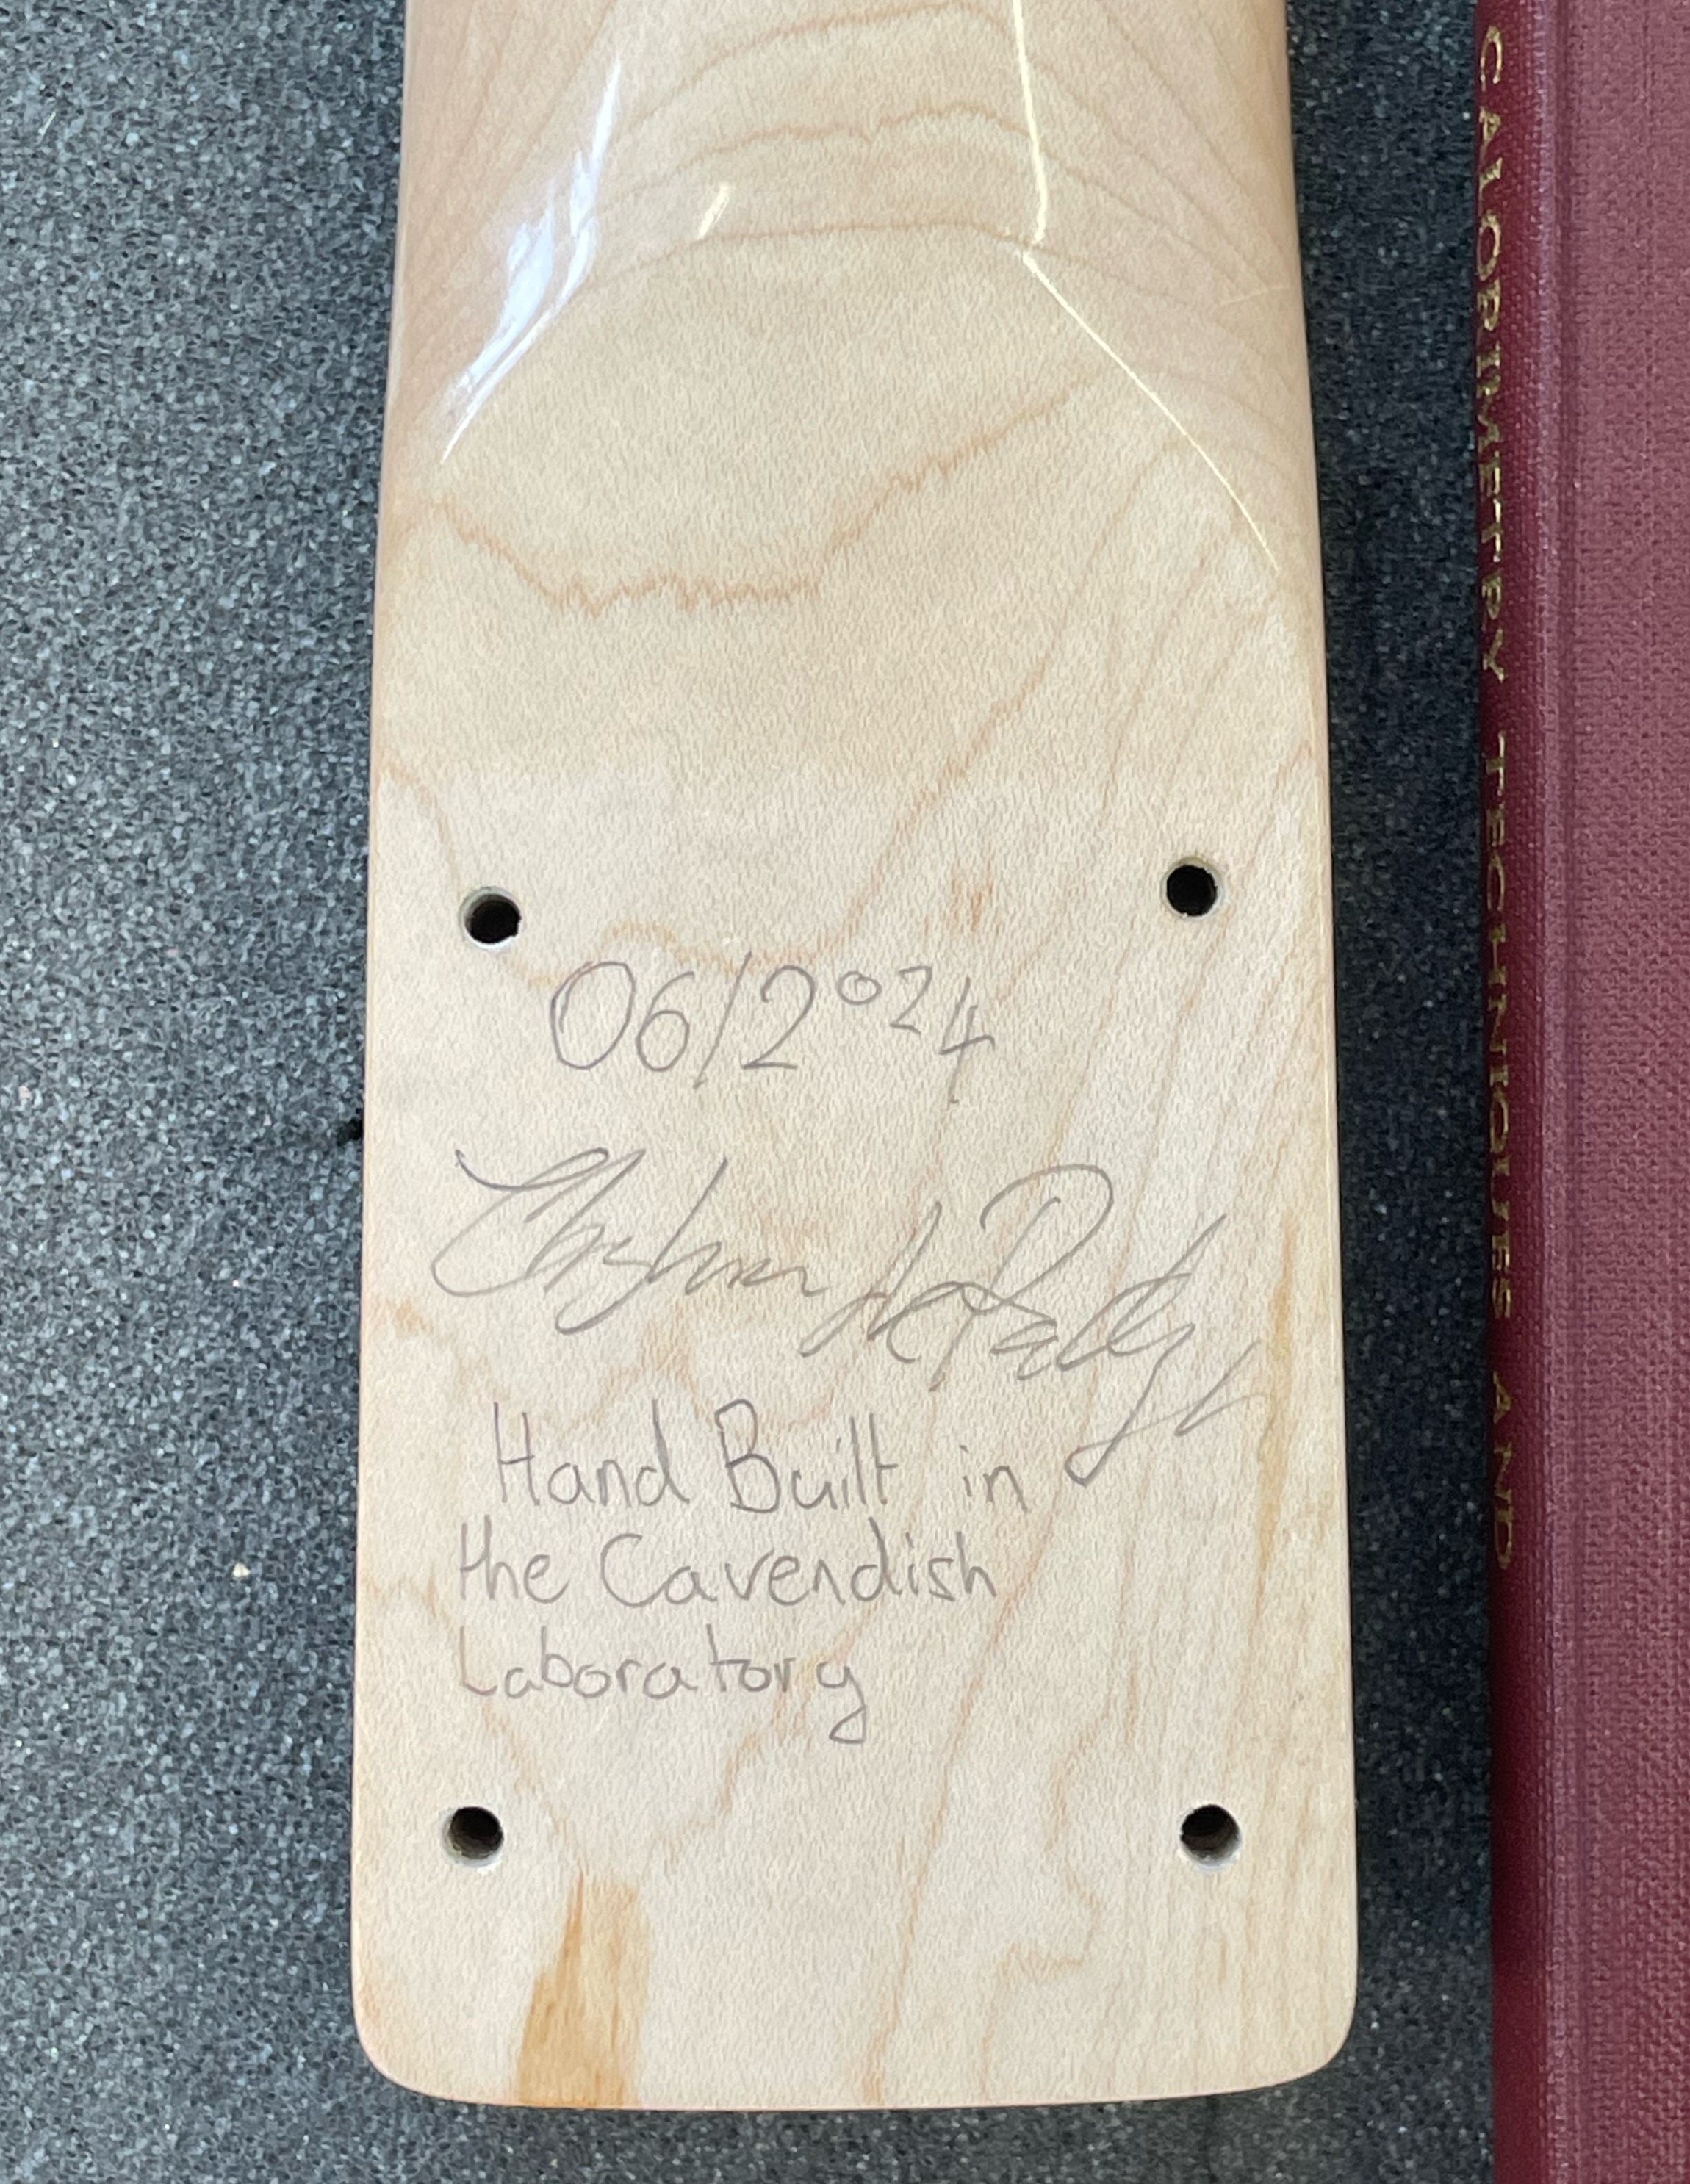 06/2024
Hand Built in
the Cavendish
Laboratory
CALORIMETRY TECHNIQUES AND